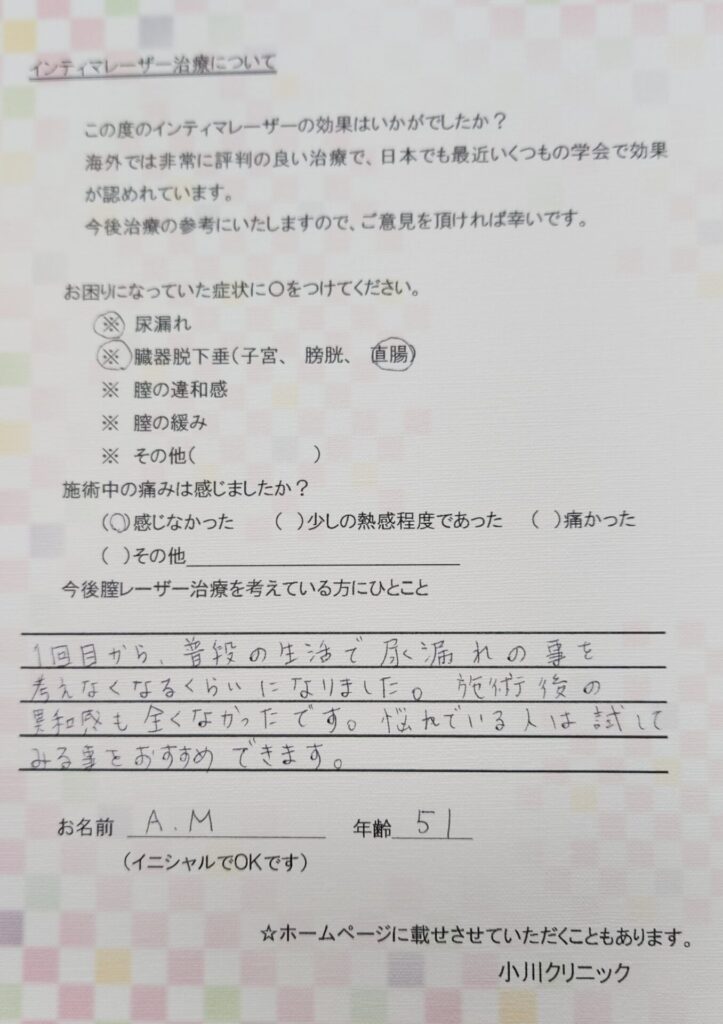 インティマレーザー治療について
この度のインティマレーザーの効果はいかがでしたか？
海外では非常に評判の良い治療で、日本でも最近いくつもの学会で効果
が認めれています。
今後治療の参考にいたしますので、ご意見を頂ければ幸いです。
お困りになっていた症状に〇をつけてください。
※ 尿漏れ
※ 臓器脱下垂(子宮、 膀胱、 直腸)
※ 膣の違和感
※ 膣の緩み
※ その他( )
施術中の痛みは感じましたか？
(〇)感じなかった ( )少しの熱感程度であった ( )痛かった
( )その他
今後膣レーザー治療を考えている方にひとこと
1回目から、普段の生活で尿漏れの事を
考えなくなるくらいになりました。施術後の
異和感も全くなかったです。悩れでいる人は試して
みる事をおすすめできます。
お名前 A.M 年齢 51
(イニシャルでOKです)
☆ホームページに載せさせていただくこともあります。
小川クリニック